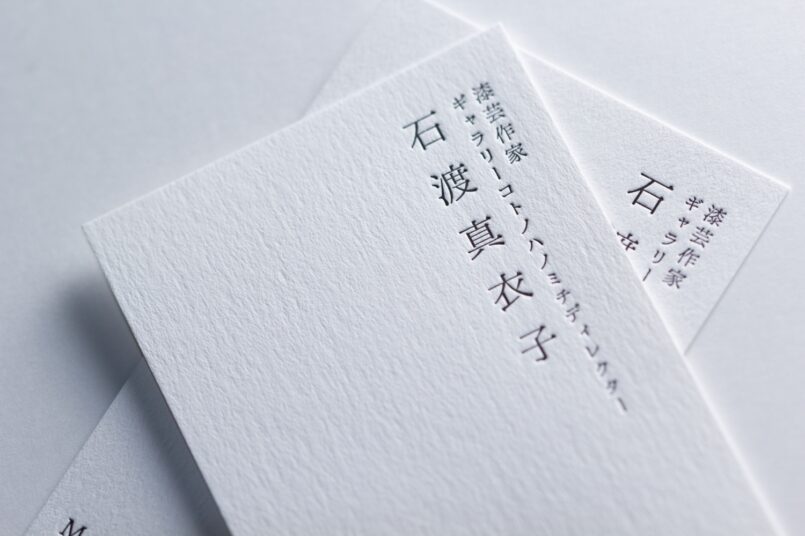 漆芸作家
ギャラリーコトノハノミチディレクター
石渡真衣子
漆芸作家
ギャラリー
石
M